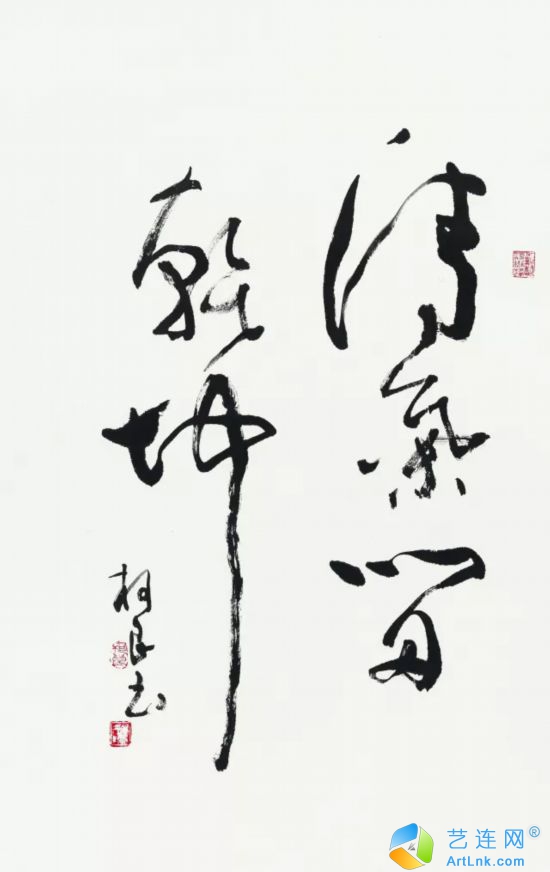 清氣留
乾坤
柯良书
艺连网®
ArtLnk.com